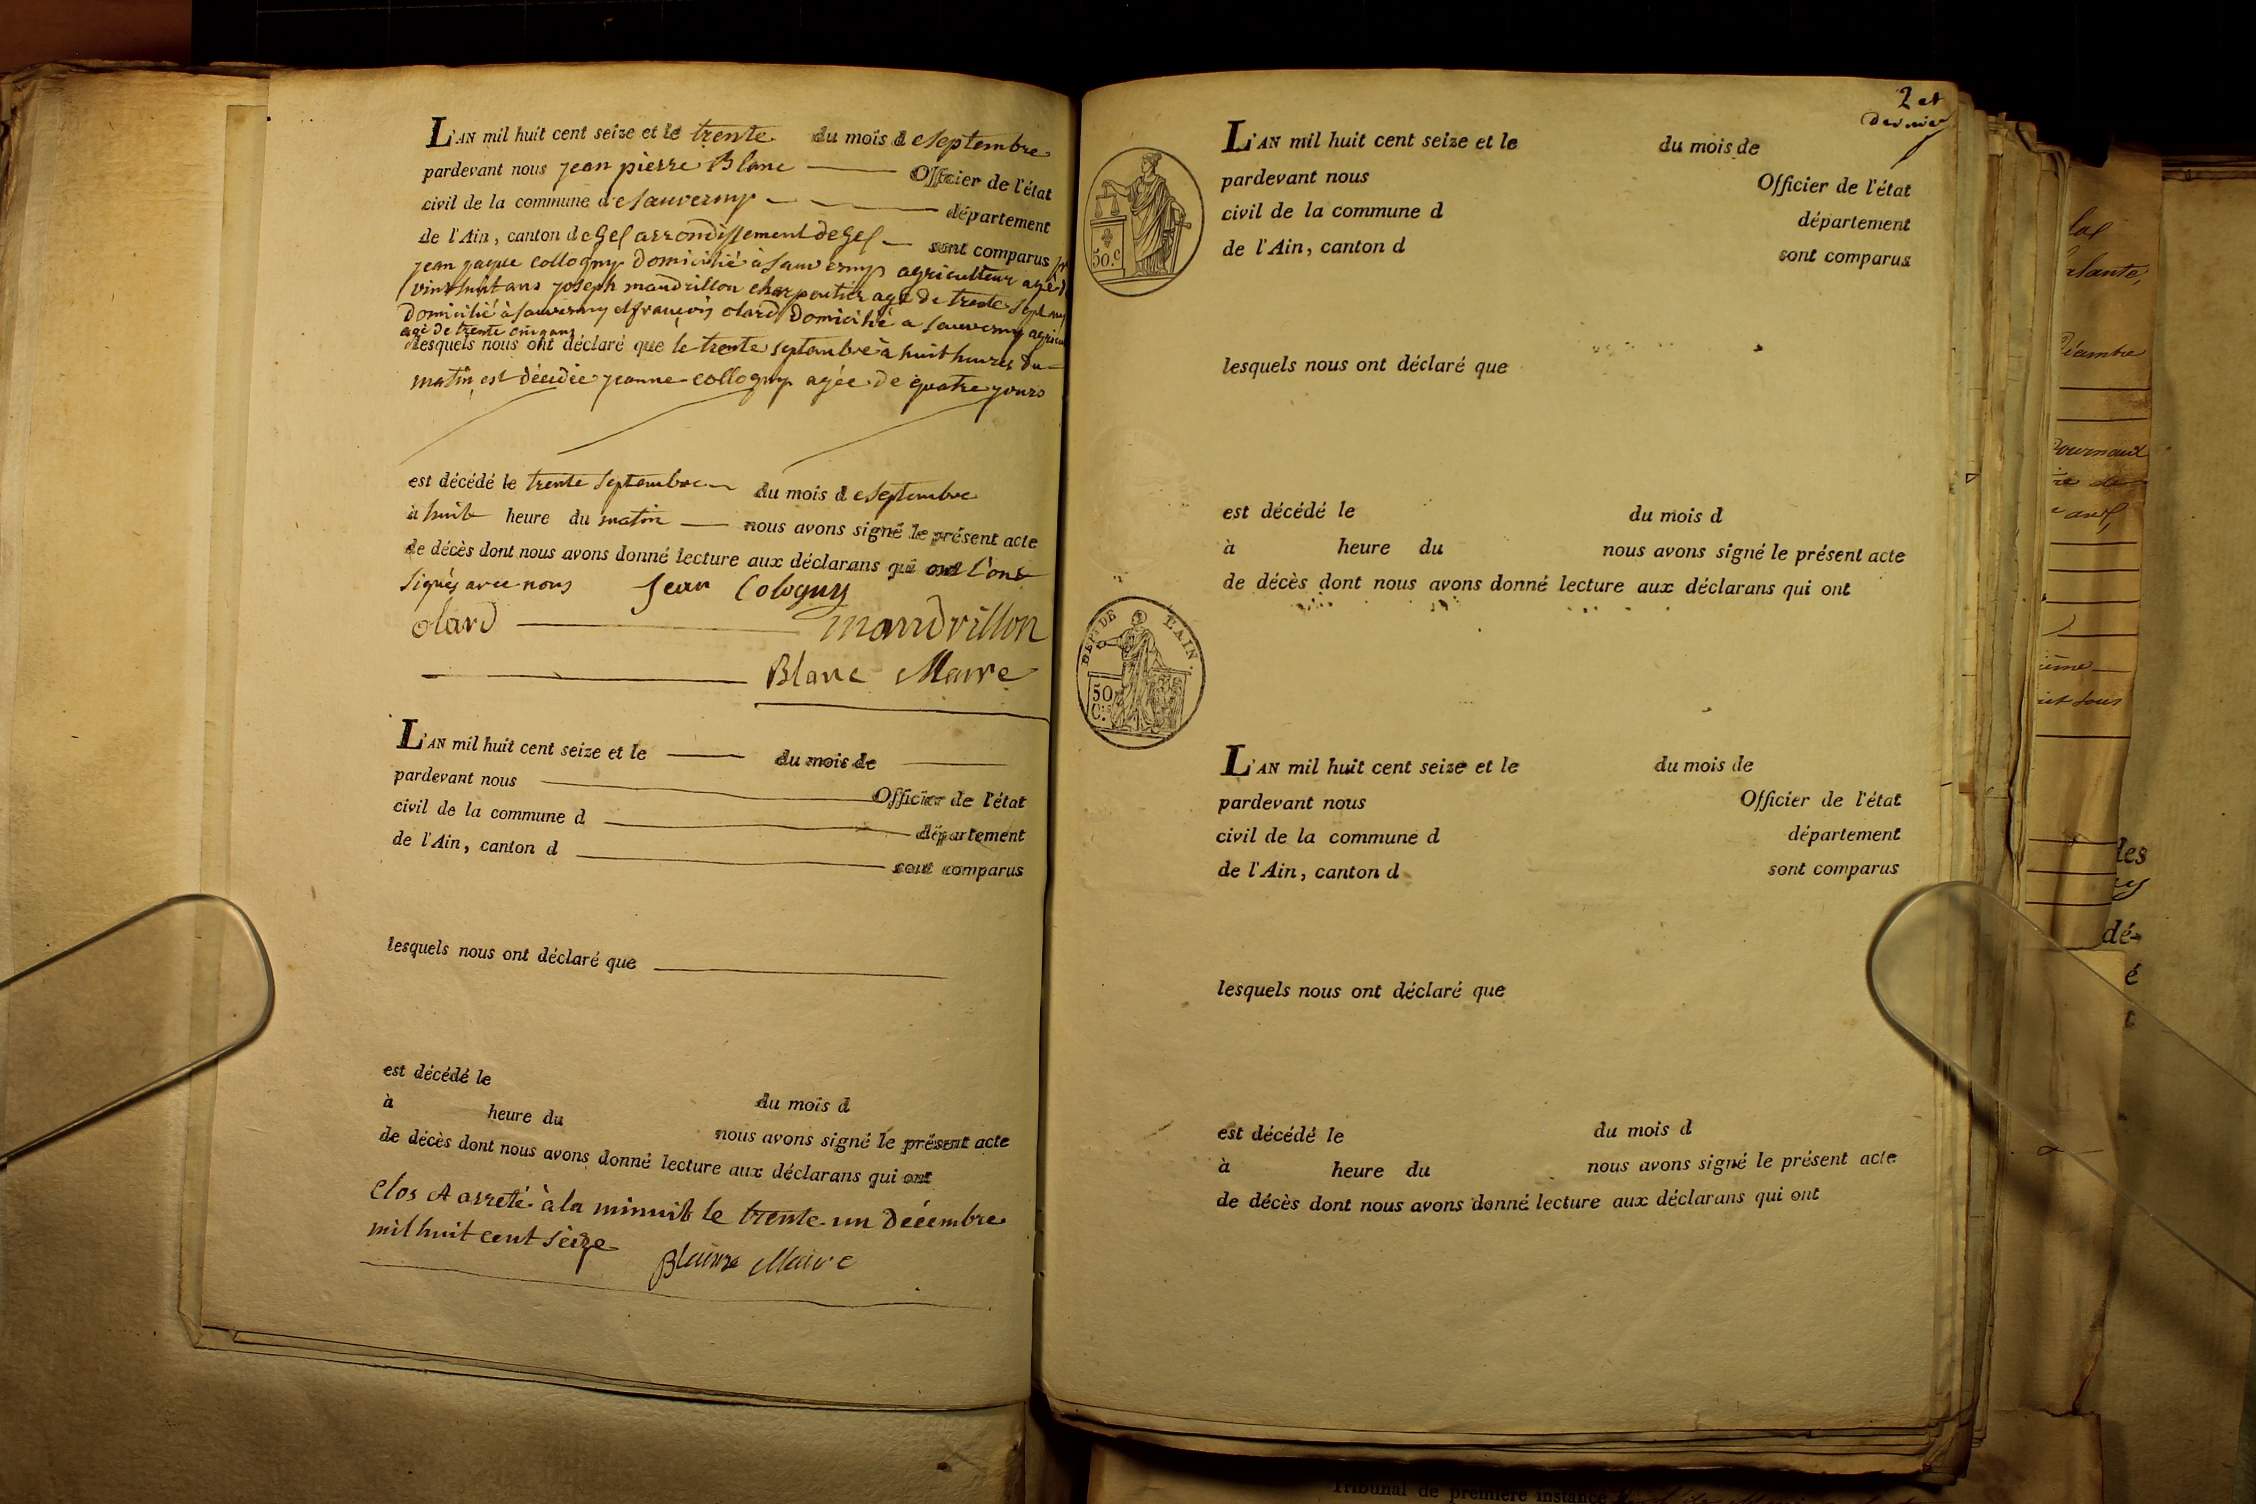 L'AN mil huit cent seize et le trente du mois de septembre
pardevant nous jean pierre Blanc Officier de l'état
civil de la commune de sauverny département
de l'Ain, canton de Gex arrondissement de Gex sont comparus
jean jaque collogny domicilié à sauverny agriculteur agé
vint huit ans joseph mandrillon charpentier agé de trente sept
domicilié à sauverny et françois olard domicilié a sauverny
agé de trente cinq ans
lesquels nous ont déclaré que le trente septembre à huit heures du
matin est décédée jeanne collogny agée de quatre jours
est décédé le trente septembre du mois de septembre
à huit heure du matin nous avons signé le présent acte
de décès dont nous avons donné lecture aux déclarans qui ont l'ont
signés avec nous Jean Cologny
olard mandrillon
Blanc Maire
L'AN mil huit cent seize et le du mois de
pardevant nous Officier de l'état
civil de la commune d département
de l'Ain, canton d sont comparus
lesquels nous ont déclaré que
est décédé le du mois d
à heure du nous avons signé le présent acte
de décès dont nous avons donné lecture aux déclarans qui ont
Clos et arreté à la minuit le trente un décembre
mil huit cent seize Blanc Maire
2 et
dernier
L'AN mil huit cent seize et le du mois de
pardevant nous Officier de l'état
civil de la commune d département
de l'Ain, canton d sont comparus
50.c
lesquels nous ont déclaré que
est décédé le du mois d
à heure du nous avons signé le présent acte
de décès dont nous avons donné lecture aux déclarans qui ont
DEP.T DE L'AIN.
50
C.es
L'AN mil huit cent seize et le du mois de
pardevant nous Officier de l'état
civil de la commune d département
de l'Ain, canton d sont comparus
lesquels nous ont déclaré que
est décédé le du mois d
à heure du nous avons signé le présent acte
de décès dont nous avons donné lecture aux déclarans qui ont
Tribunal de première instance